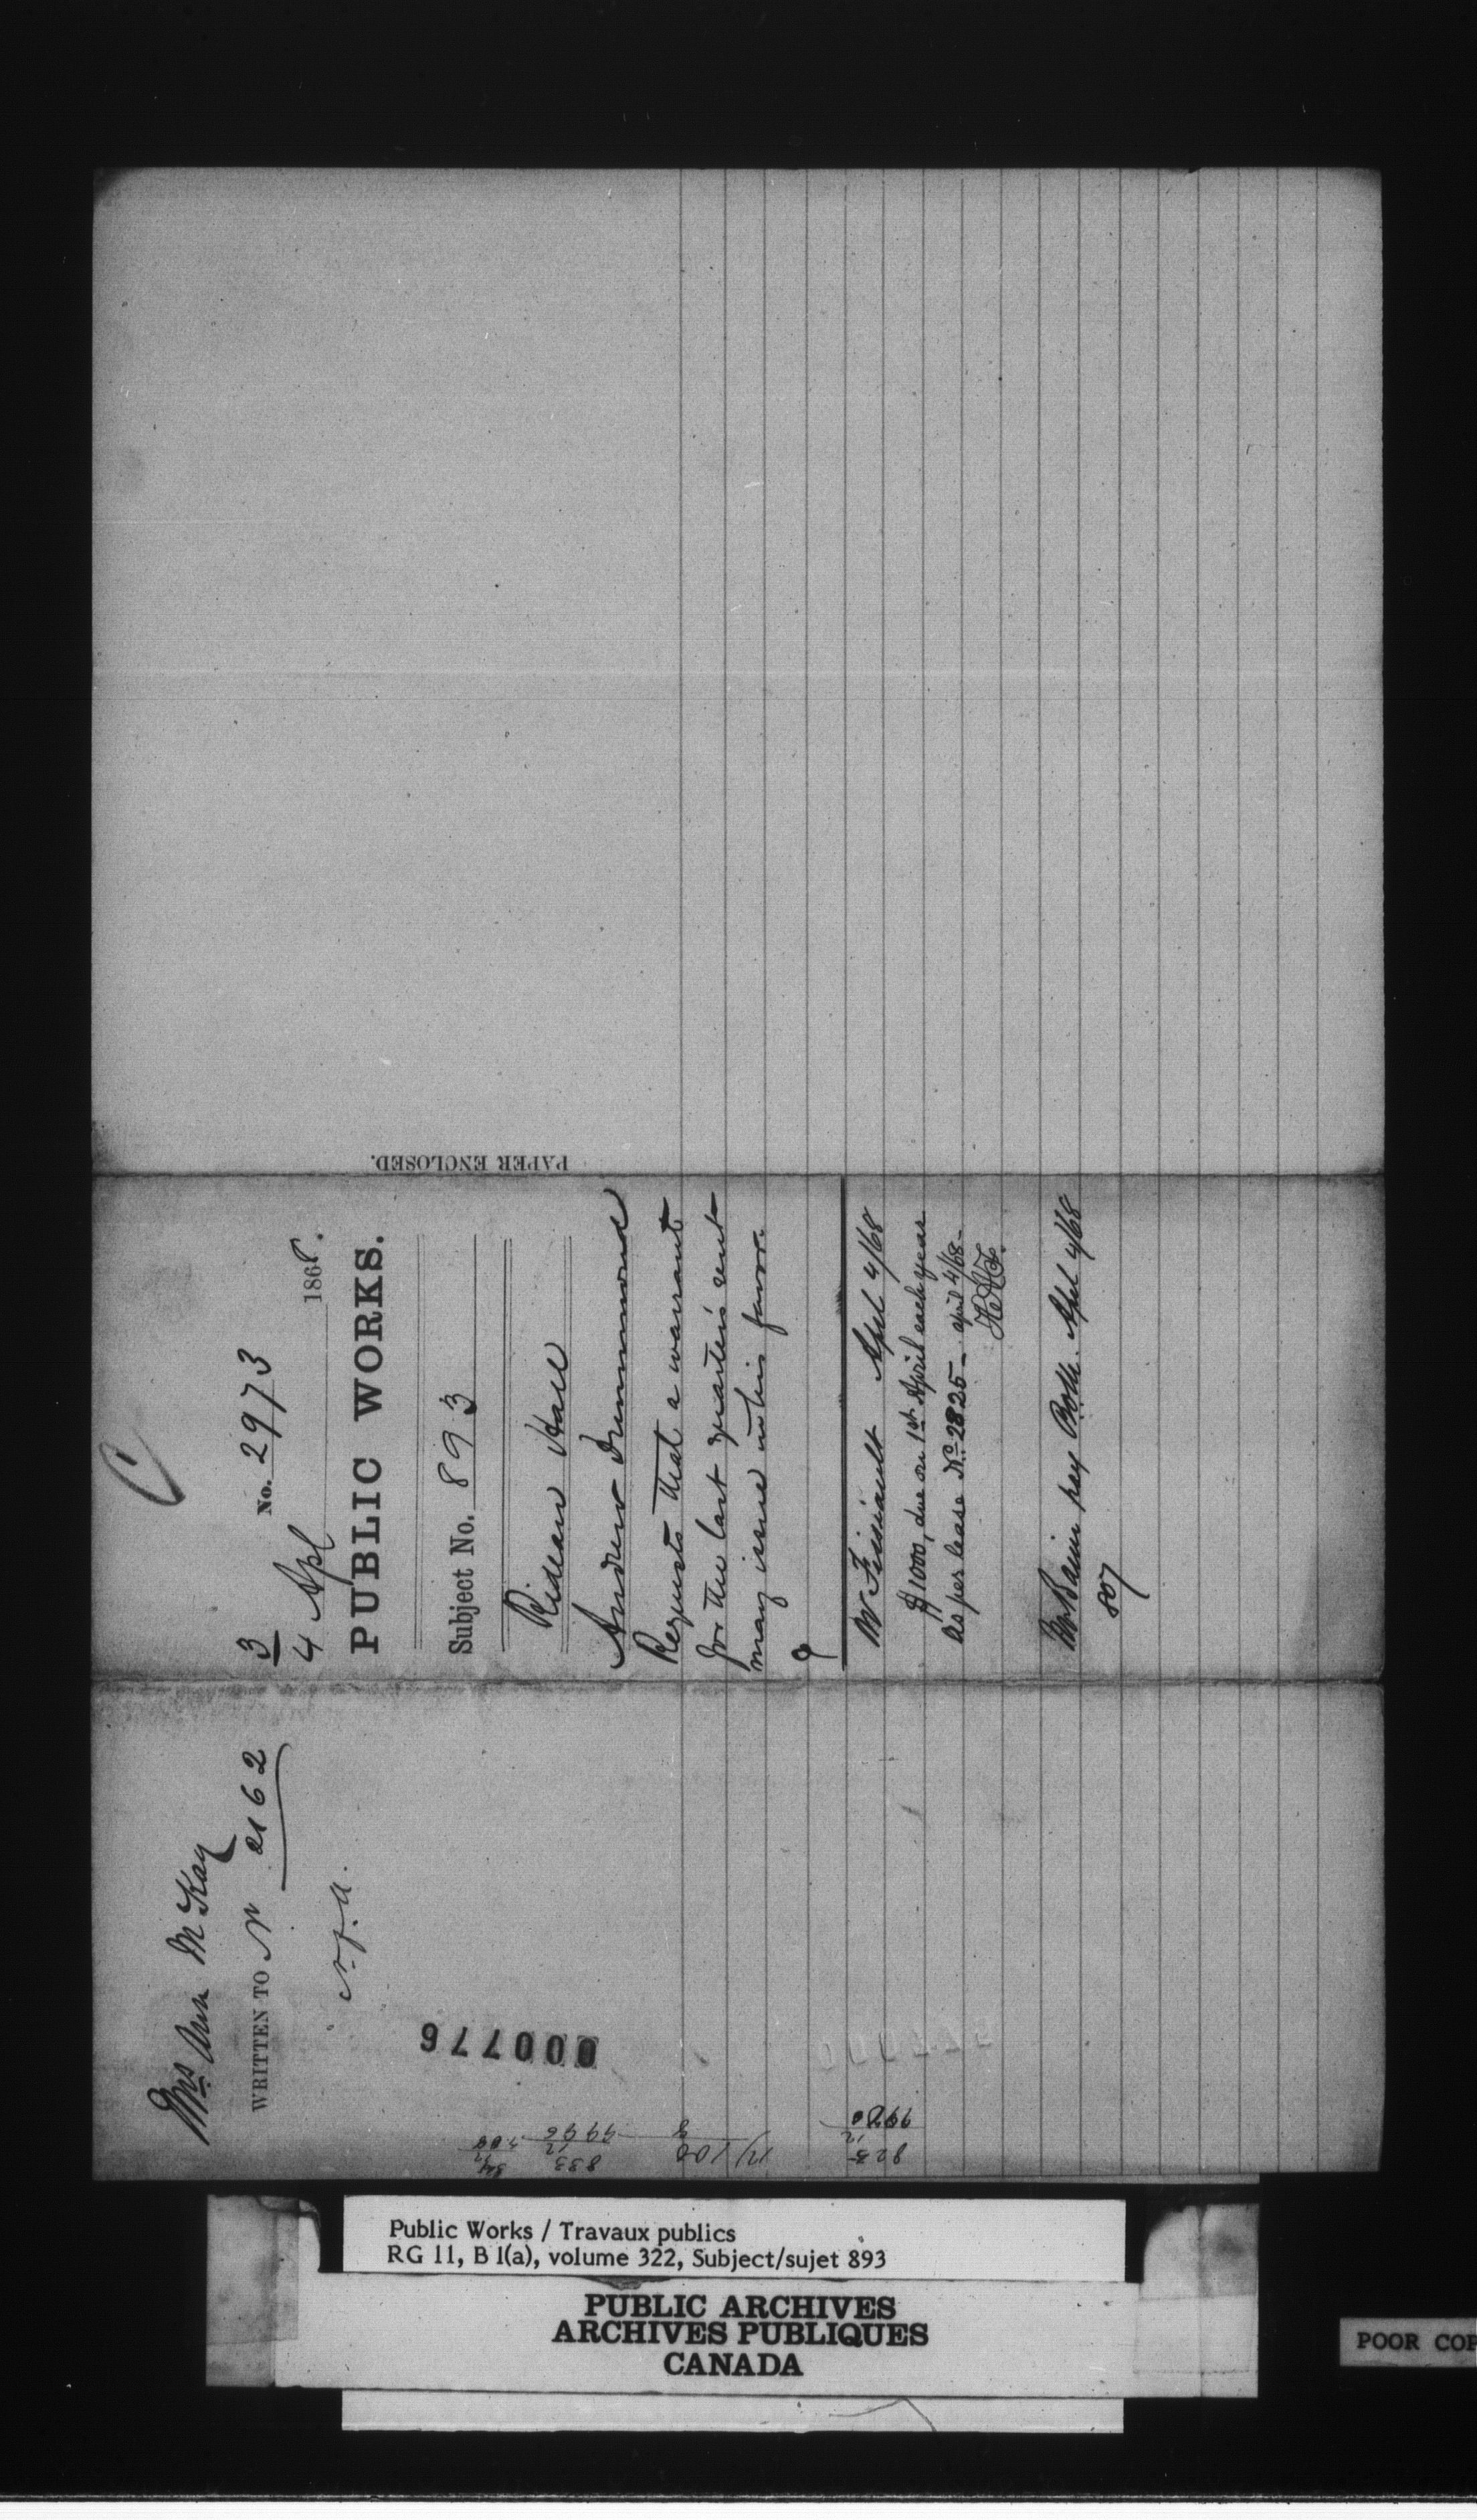 C
No. 2973
3
4 Apl 1868.
PUBLIC WORKS.
Subject No. 893
Rideau Hall
Andrew Drummond
Requests that a warrant
for the last quarter's rent
may issue in his favor.
Mr Fissiault Apl 4/68
$1000, due on 1st April each year
as per lease No. 2825 - april 4/68 -
Mr Baine pay Apl 4/68
807
PAPER ENCLOSED.
Mrs Ann McKay
WRITTEN TO 2162
000776
833
12
9996
12)100
8
825
12
Public Works / Travaux publics
RG 11, B 1(a), volume 322, Subject/sujet 893
PUBLIC ARCHIVES
ARCHIVES PUBLIQUES
CANADA
POOR COP